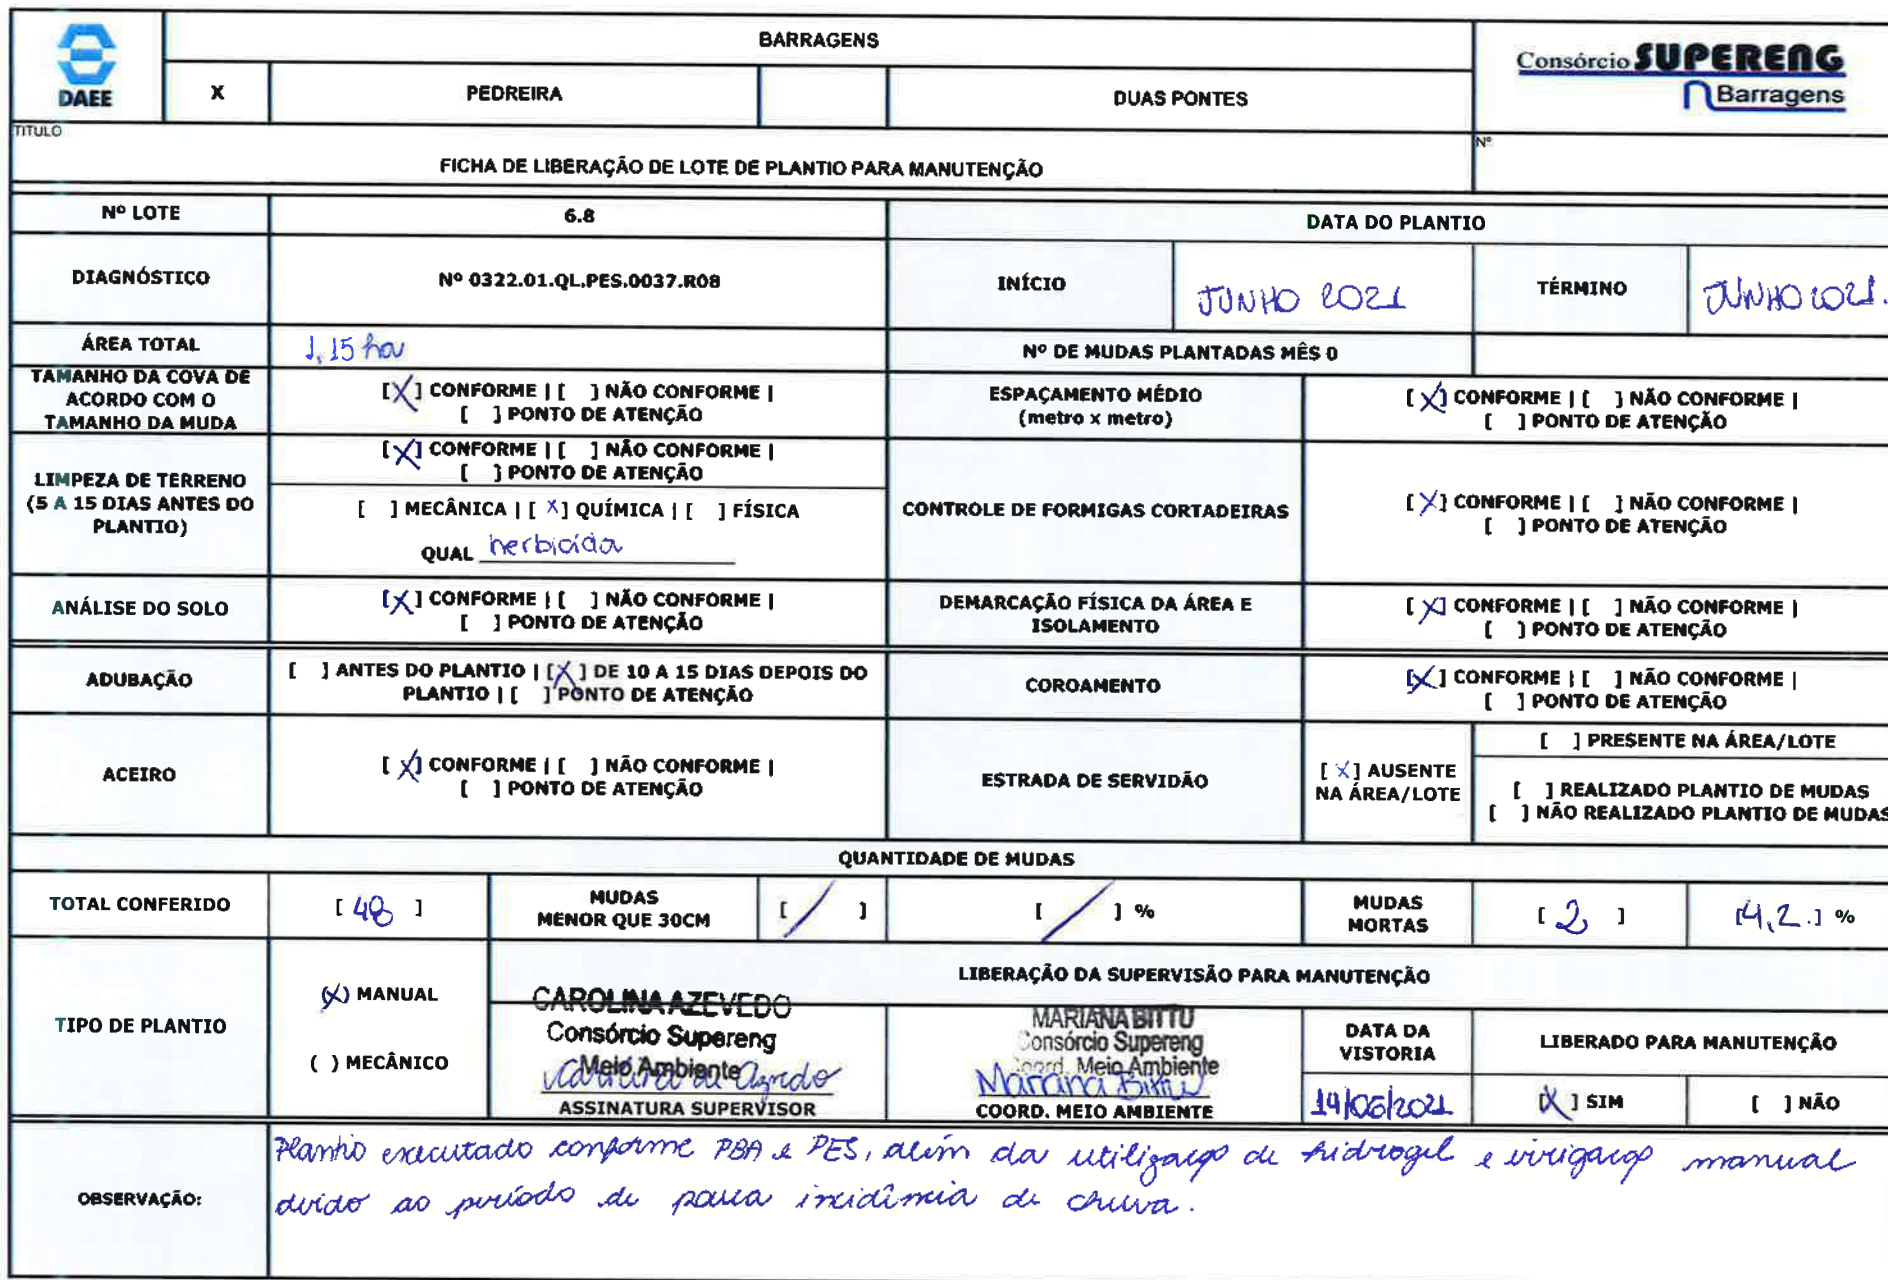 DAEE
BARRAGENS
Consórcio SUPERENG
Barragens
X
PEDREIRA
DUAS PONTES
TITULO
Nº
FICHA DE LIBERAÇÃO DE LOTE DE PLANTIO PARA MANUTENÇÃO
Nº LOTE
6.8
DATA DO PLANTIO
DIAGNÓSTICO
Nº 0322.01.QL.PES.0037.R08
INÍCIO
JUNHO 2021
TÉRMINO
JUNHO 2021.
ÁREA TOTAL
1,15 ha
Nº DE MUDAS PLANTADAS MÊS 0
TAMANHO DA COVA DE
ACORDO COM O
TAMANHO DA MUDA
[X] CONFORME | [ ] NÃO CONFORME |
[ ] PONTO DE ATENÇÃO
ESPAÇAMENTO MÉDIO
(metro x metro)
[X] CONFORME | [ ] NÃO CONFORME |
[ ] PONTO DE ATENÇÃO
LIMPEZA DE TERRENO
(5 A 15 DIAS ANTES DO
PLANTIO)
[X] CONFORME | [ ] NÃO CONFORME |
[ ] PONTO DE ATENÇÃO
[ ] MECÂNICA | [X] QUÍMICA | [ ] FÍSICA
QUAL herbicida
CONTROLE DE FORMIGAS CORTADEIRAS
[X] CONFORME | [ ] NÃO CONFORME |
[ ] PONTO DE ATENÇÃO
ANÁLISE DO SOLO
[X] CONFORME | [ ] NÃO CONFORME |
[ ] PONTO DE ATENÇÃO
DEMARCAÇÃO FÍSICA DA ÁREA E
ISOLAMENTO
[X] CONFORME | [ ] NÃO CONFORME |
[ ] PONTO DE ATENÇÃO
ADUBAÇÃO
[ ] ANTES DO PLANTIO | [X] DE 10 A 15 DIAS DEPOIS DO
PLANTIO | [ ] PONTO DE ATENÇÃO
COROAMENTO
[X] CONFORME | [ ] NÃO CONFORME |
[ ] PONTO DE ATENÇÃO
ACEIRO
[X] CONFORME | [ ] NÃO CONFORME |
[ ] PONTO DE ATENÇÃO
ESTRADA DE SERVIDÃO
[X] AUSENTE
NA ÁREA/LOTE
[ ] PRESENTE NA ÁREA/LOTE
[ ] REALIZADO PLANTIO DE MUDAS
[ ] NÃO REALIZADO PLANTIO DE MUDAS
QUANTIDADE DE MUDAS
TOTAL CONFERIDO
[ 48 ]
MUDAS
MENOR QUE 30CM
[ / ]
[ / ] %
MUDAS
MORTAS
[ 2 ]
[4,2.] %
TIPO DE PLANTIO
(X) MANUAL
( ) MECÂNICO
LIBERAÇÃO DA SUPERVISÃO PARA MANUTENÇÃO
CAROLINA AZEVEDO
Consórcio Supereng
Meio Ambiente
Carolina de Azevedo
ASSINATURA SUPERVISOR
MARIANA BITTU
Consórcio Supereng
Coord. Meio Ambiente
Mariana Bittu
COORD. MEIO AMBIENTE
DATA DA
VISTORIA
14/06/2021
LIBERADO PARA MANUTENÇÃO
[X] SIM
[ ] NÃO
OBSERVAÇÃO:
Plantio executado conforme PBA e PES, além da utilização de hidrogel e irrigação manual
devido ao período de pouca incidência de chuva.